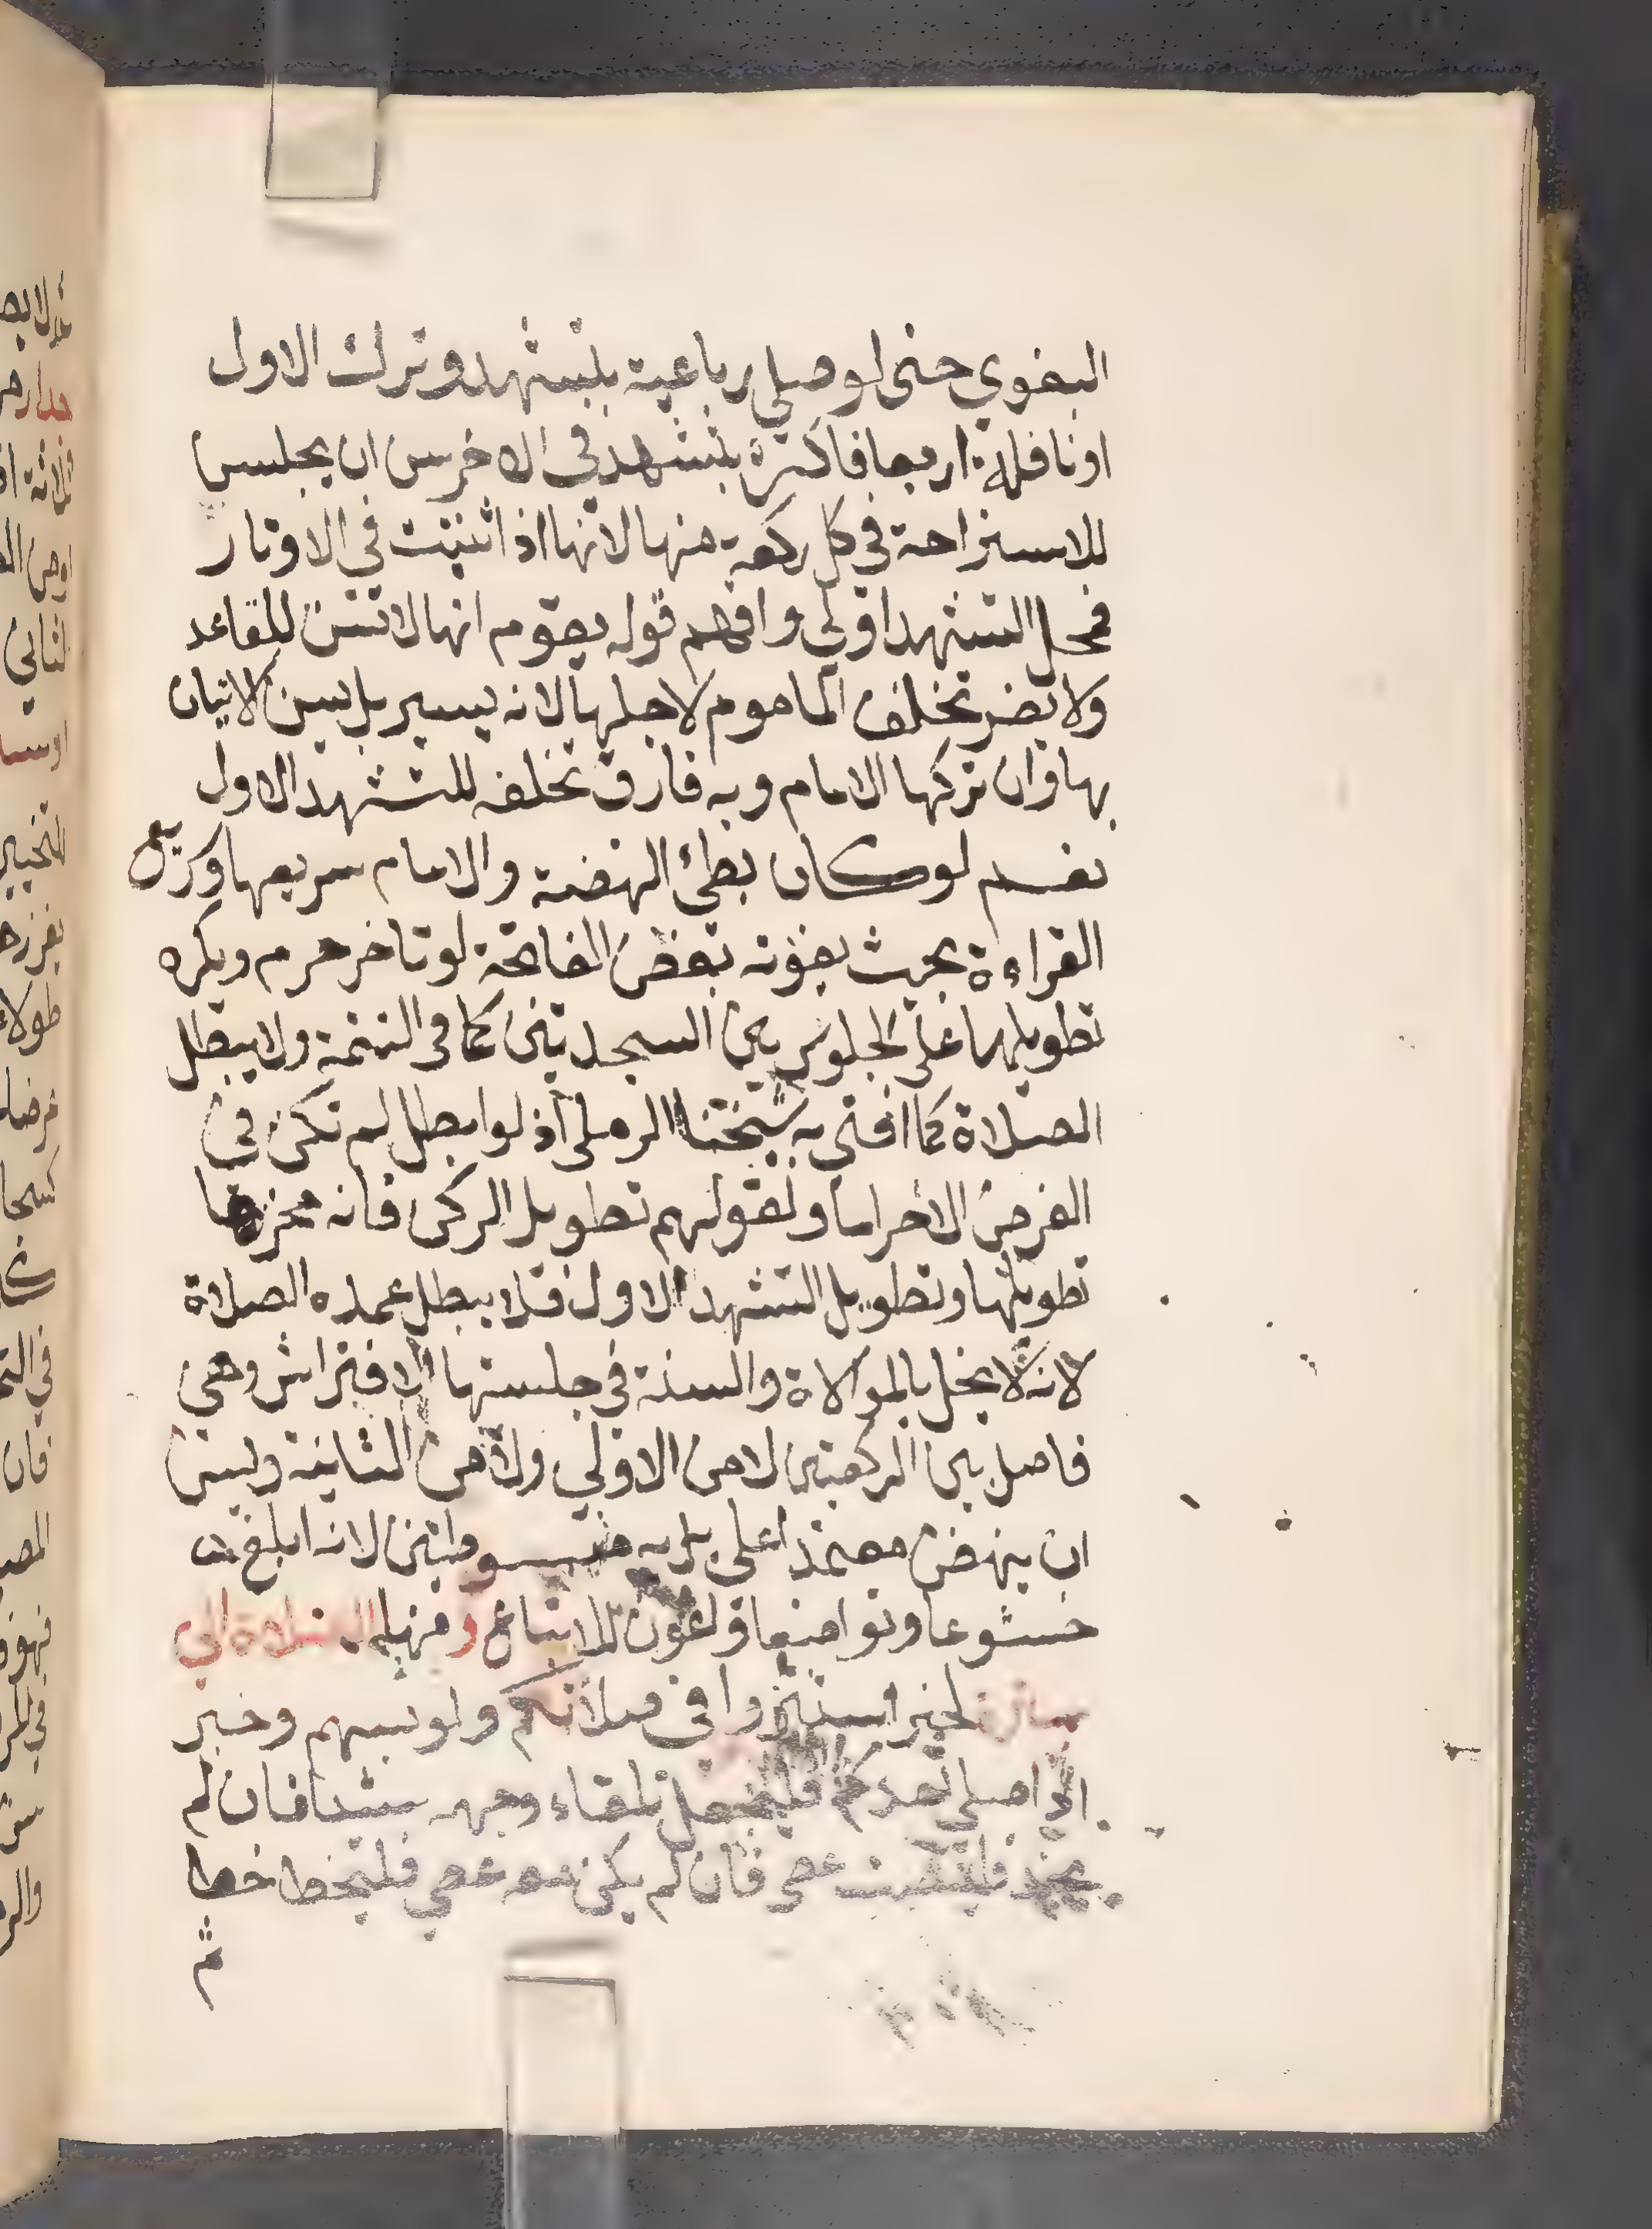 البغوي حتى لو صلى رباعية بتشهد وترك الاول
او نافلة اربعا فاكثر بتشهد في الاخر سن ان يجلس
للاستراحة في كل ركعة منها لانها اذا ثبتت في الاوتار
فمحل التشهد اولى وافهم قوله يقوم انها لا تسن للقاعد
ولا يضر تخلف الماموم لاجلها لانه يسير بل يسن الاتيان
بها وان تركها الامام وبه فارق تخلفه للتشهد الاول
نعم لو كان بطئ النهضة والامام سريعها وسريع
القراءة بحيث يفوته بعض الفاتحة لو تاخر حرم ويكره
تطويلها على الجلوس بين السجدتين كما في التتمة ولا يبطل
الصلاة كما افتى به شيخنا الرملي اذ لو ابطل لم تكن في
الفرض الاحراما ولقولهم تطويل الركن فانه مخرج
تطويلها وتطويل التشهد الاول فلا يبطل عمده الصلاة
لانه لا يخل بالموالاة والسنة في جلستها الافتراش وهي
فاصل بين الركعتين لا من الاولى ولا من الثانية وليس
ان ينهض معتمدا على يديه مبسوطتين لانه ابلغ
خشوعا وتواضعا واعون للاتباع ومنها الصلاة الى
ساتر لخبر استتروا في صلاتكم ولو بسهم وخبر
اذا صلى احدكم فليجعل تلقاء وجهه شيئا فان لم
يجد فلينصب عصى فان لم يكن معه عصى فليخط خطا
ثم